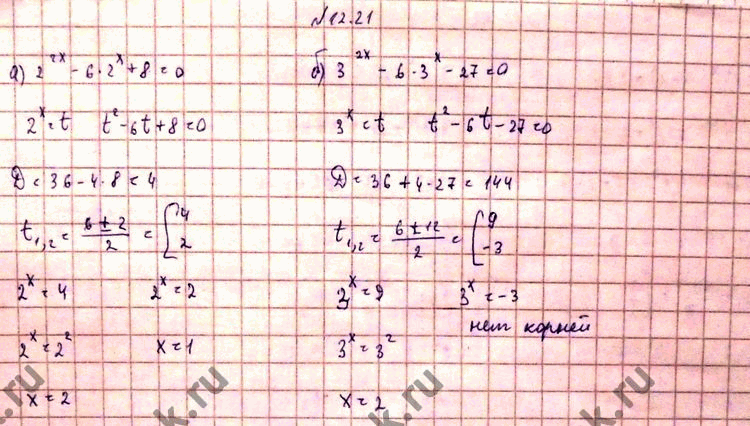 №12.21
а) 2^{2x} - 6·2^x + 8 = 0
2^x = t    t^2 - 6t + 8 = 0
D = 36 - 4·8 = 4
t_{1,2} = \frac{6 ± 2}{2} = [4 2
2^x = 4    2^x = 2
2^x = 2^2    x = 1
x = 2
б) 3^{2x} - 6·3^x - 27 = 0
3^x = t    t^2 - 6t - 27 = 0
D = 36 + 4·27 = 144
t_{1,2} = \frac{6 ± 12}{2} = [9 -3
3^x = 9    3^x = -3
нет корней
3^x = 3^2
x = 2
k.ru
k.ru
k.ru